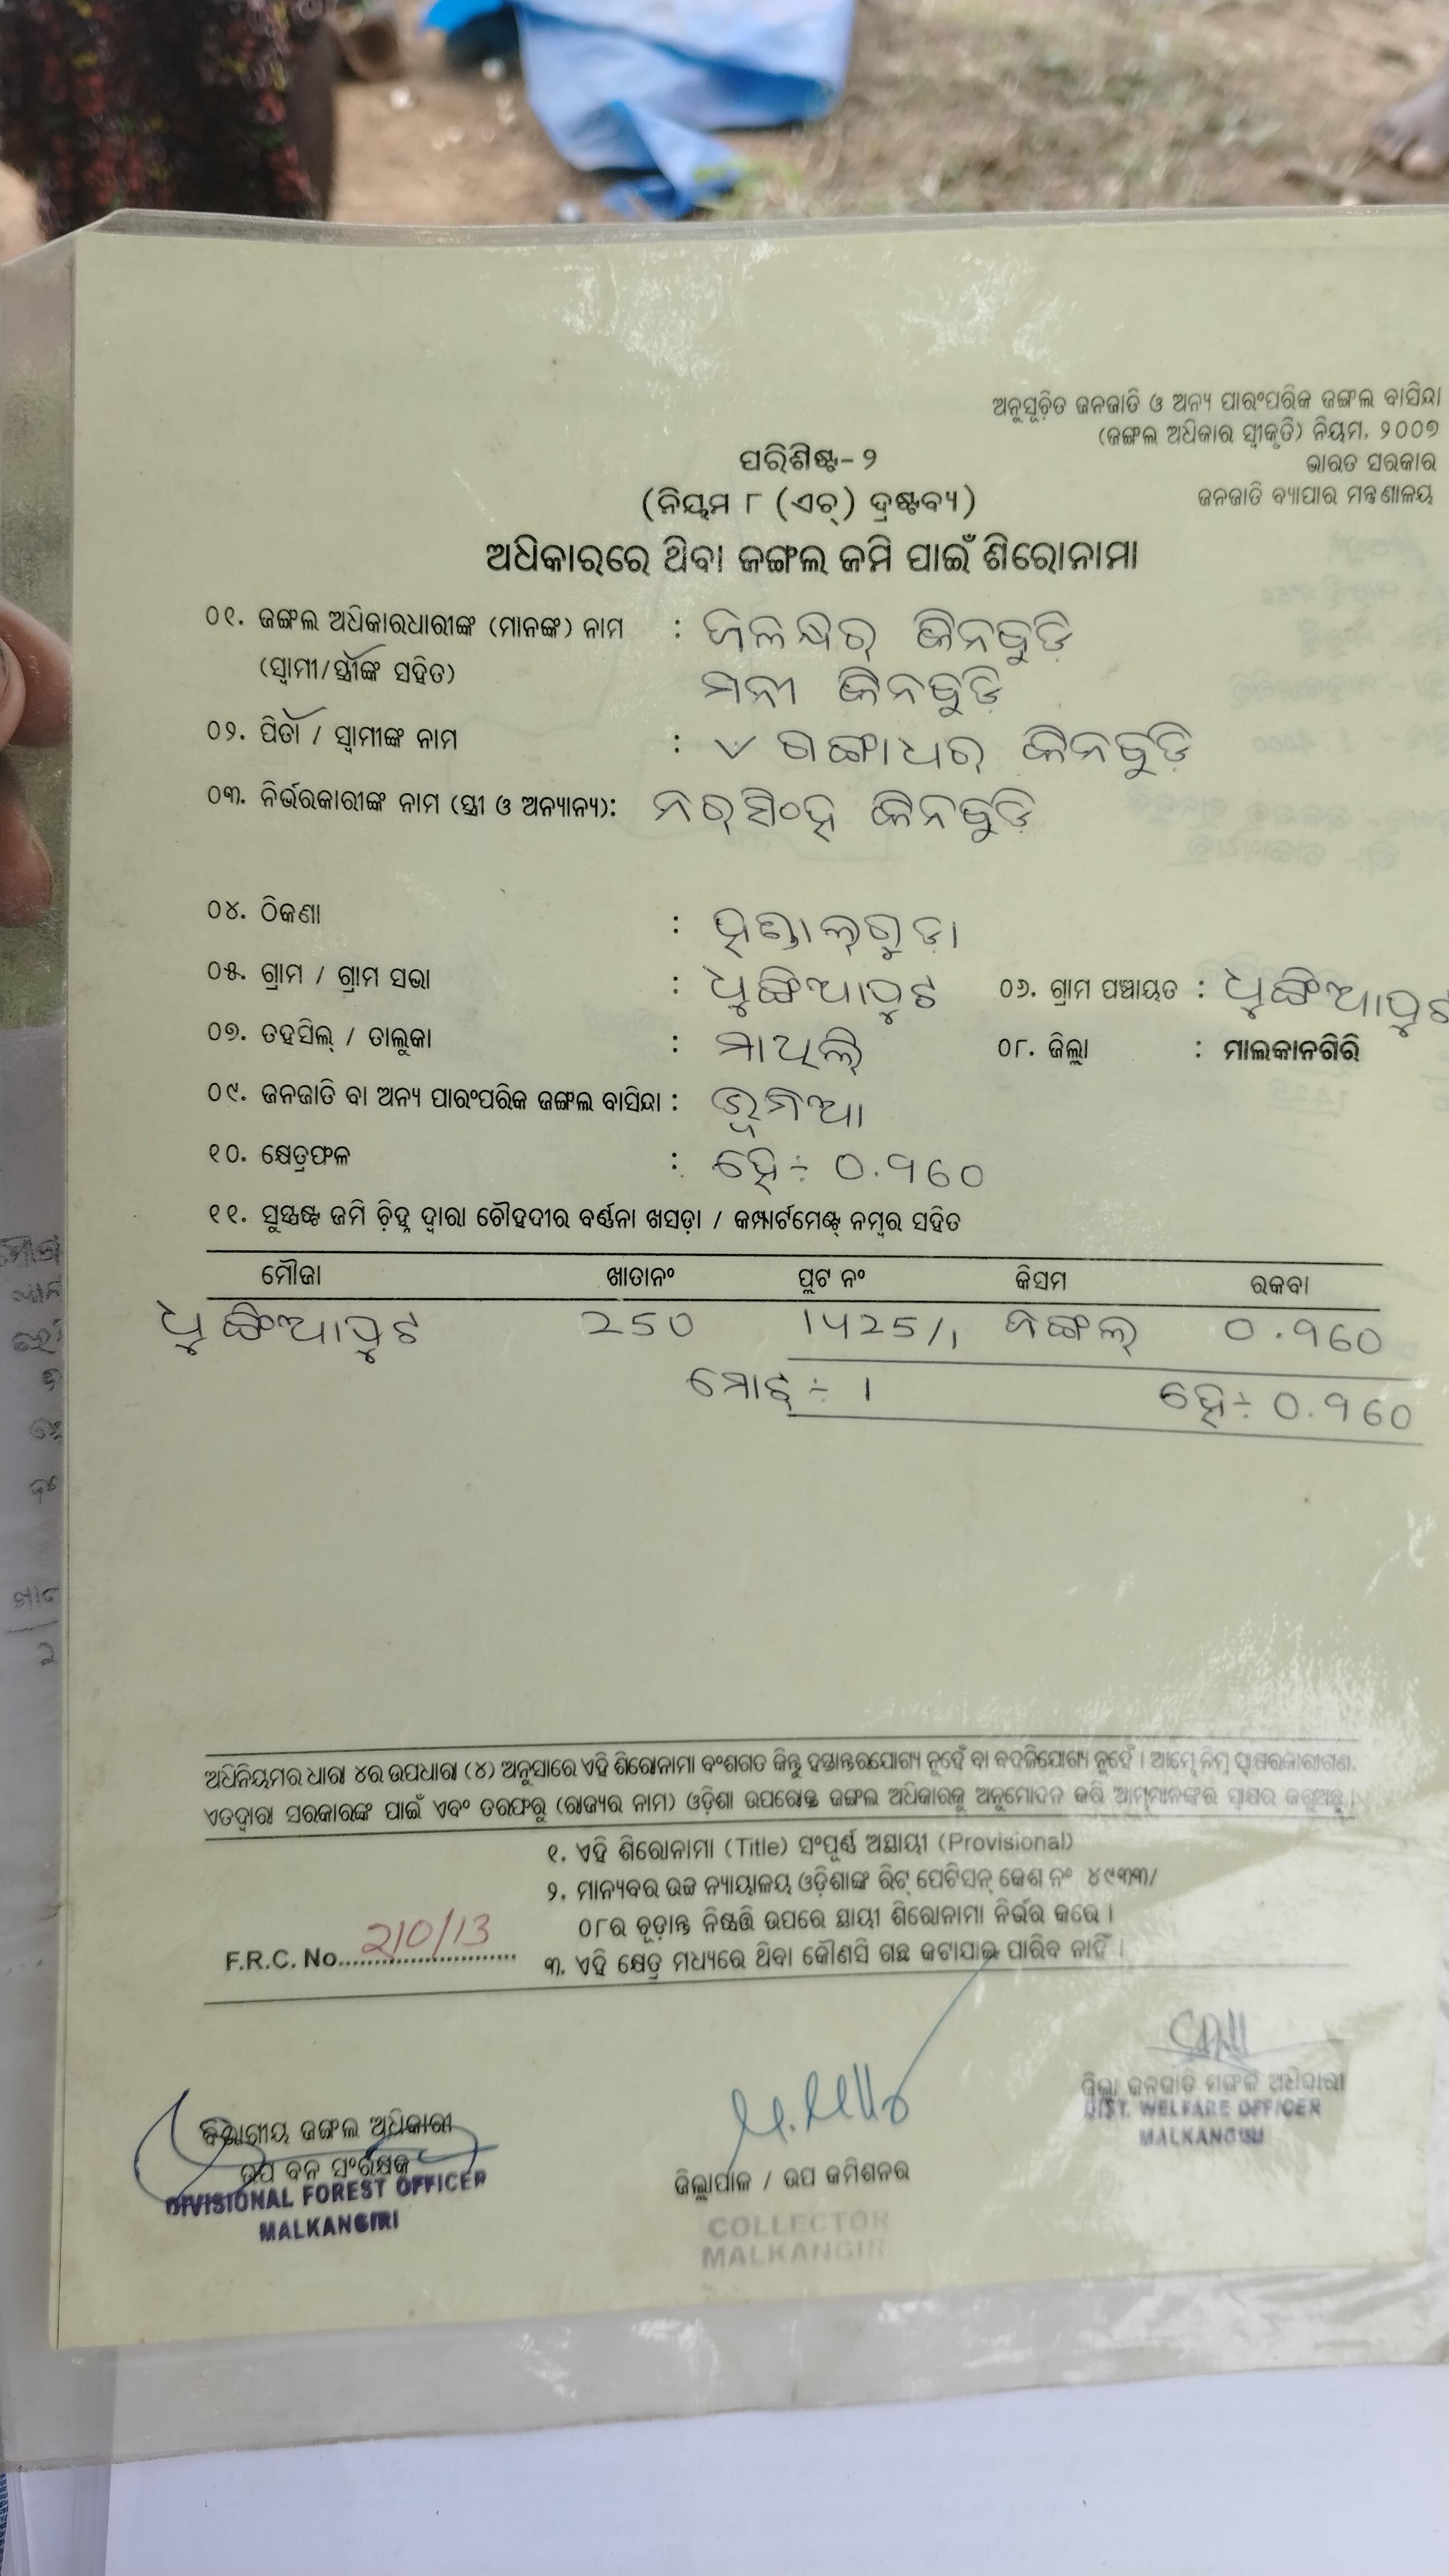 ଅନୁସୂଚିତ ଜନଜାତି ଓ ଅନ୍ୟ ପାରଂପରିକ ଜଙ୍ଗଲ ବାସିନ୍ଦା
(ଜଙ୍ଗଲ ଅଧିକାର ସ୍ୱୀକୃତି) ନିୟମ, ୨୦୦୭
ଭାରତ ସରକାର
ଜନଜାତି ବ୍ୟାପାର ମନ୍ତ୍ରଣାଳୟ
ପରିଶିଷ୍ଟ-୨
(ନିୟମ ୮ (ଏଚ୍) ଦ୍ରଷ୍ଟବ୍ୟ)
ଅଧିକାରରେ ଥିବା ଜଙ୍ଗଲ ଜମି ପାଇଁ ଶିରୋନାମା
୦୧. ଜଙ୍ଗଲ ଅଧିକାରଧାରୀଙ୍କ (ମାନଙ୍କ) ନାମ : ଜଳନ୍ଧର୍ କିନବୁଡ଼ି
(ସ୍ୱାମୀ/ସ୍ତ୍ରୀଙ୍କ ସହିତ) ମନୀ କିନବୁଡ଼ି
୦୨. ପିତା / ସ୍ୱାମୀଙ୍କ ନାମ : ଗଙ୍ଗାଧର୍ କିନବୁଡ଼ି
୦୩. ନିର୍ଭରକାରୀଙ୍କ ନାମ (ସ୍ତ୍ରୀ ଓ ଅନ୍ୟାନ୍ୟ): ନର୍ସିଂହ କିନବୁଡ଼ି
୦୪. ଠିକଣା :
୦୫. ଗ୍ରାମ / ଗ୍ରାମ ସଭା : ଧୁଙ୍ଗିଆପୁଟ ୦୬. ଗ୍ରାମ ପଞ୍ଚାୟତ : ଧୁଙ୍ଗିଆପୁଟ
୦୭. ତହସିଲ୍ / ତାଲୁକା : ମାଥିଲି ୦୮. ଜିଲ୍ଲା : ମାଲକାନଗିରି
୦୯. ଜନଜାତି ବା ଅନ୍ୟ ପାରଂପରିକ ଜଙ୍ଗଲ ବାସିନ୍ଦା : ଭୂମିଆ
୧୦. କ୍ଷେତ୍ରଫଳ : ହେ÷ ୦.୩60
୧୧. ସୁସ୍ପଷ୍ଟ ଜମି ଚିହ୍ନ ଦ୍ୱାରା ଚୌହଦୀର ବର୍ଣ୍ଣନା ଖସଡ଼ା / କମ୍ପାର୍ଟମେଣ୍ଟ୍ ନମ୍ବର ସହିତ
ମୌଜା ଖାତାନଂ ପ୍ଲଟ ନଂ କିସମ ରକବା
ଧୁଙ୍ଗିଆପୁଟ 250 1425/1 ଜଙ୍ଗଲ୍ 0.960
ମୋଟ୍ ÷ 1 ହେ÷ 0.960
ଅଧିନିୟମର ଧାରା ୪ର ଉପଧାରା (୪) ଅନୁସାରେ ଏହି ଶିରୋନାମା ବଂଶଗତ କିନ୍ତୁ ହସ୍ତାନ୍ତରଯୋଗ୍ୟ ନୁହେଁ ବା ବଦଳିଯୋଗ୍ୟ ନୁହେଁ । ଆମ୍ଭେ ନିମ୍ନ ସ୍ୱାକ୍ଷରକାରୀଗଣ,
ଏତଦ୍ୱାରା ସରକାରଙ୍କ ପାଇଁ ଏବଂ ତରଫରୁ (ରାଜ୍ୟର ନାମ) ଓଡ଼ିଶା ଉପରୋକ୍ତ ଜଙ୍ଗଲ ଅଧିକାରକୁ ଅନୁମୋଦନ କରି ଆମ୍ଭମାନଙ୍କର ସ୍ୱାକ୍ଷର କରୁଅଛୁ ।
୧. ଏହି ଶିରୋନାମା (Title) ସଂପୂର୍ଣ୍ଣ ଅସ୍ଥାୟୀ (Provisional)
୨. ମାନ୍ୟବର ଉଚ୍ଚ ନ୍ୟାୟାଳୟ ଓଡ଼ିଶାଙ୍କ ରିଟ୍ ପେଟିସନ୍ କେଶ ନଂ ୪୯୩୩/
୦୮ର ଚୂଡ଼ାନ୍ତ ନିଷ୍ପତ୍ତି ଉପରେ ସ୍ଥାୟୀ ଶିରୋନାମା ନିର୍ଭର କରେ ।
F.R.C. No. 210/13 ୩. ଏହି କ୍ଷେତ୍ର ମଧ୍ୟରେ ଥିବା କୌଣସି ଗଛ କଟାଯାଇ ପାରିବ ନାହିଁ ।
ବିଭାଗୀୟ ଜଙ୍ଗଲ ଅଧିକାରୀ
ଉପ ବନ ସଂରକ୍ଷକ
DIVISIONAL FOREST OFFICER
MALKANGIRI
ଜିଲ୍ଲାପାଳ / ଉପ କମିଶନର
COLLECTOR
MALKANGIRI
ଜିଲ୍ଲା ଜନଜାତି ମଙ୍ଗଳ ଅଧିକାରୀ
DIST. WELFARE OFFICER
MALKANGIRI